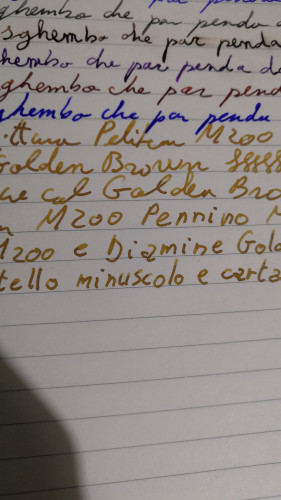 ghembo che par penda
sghembo che par penda
hembo che par penda da
ghembo che par pend
ghembo che par penda
ttura Pelikan M200
Golden Brown
col Golden Bro
M200 Pennino M
M200 e Diamine Gold
tello minuscolo e carta